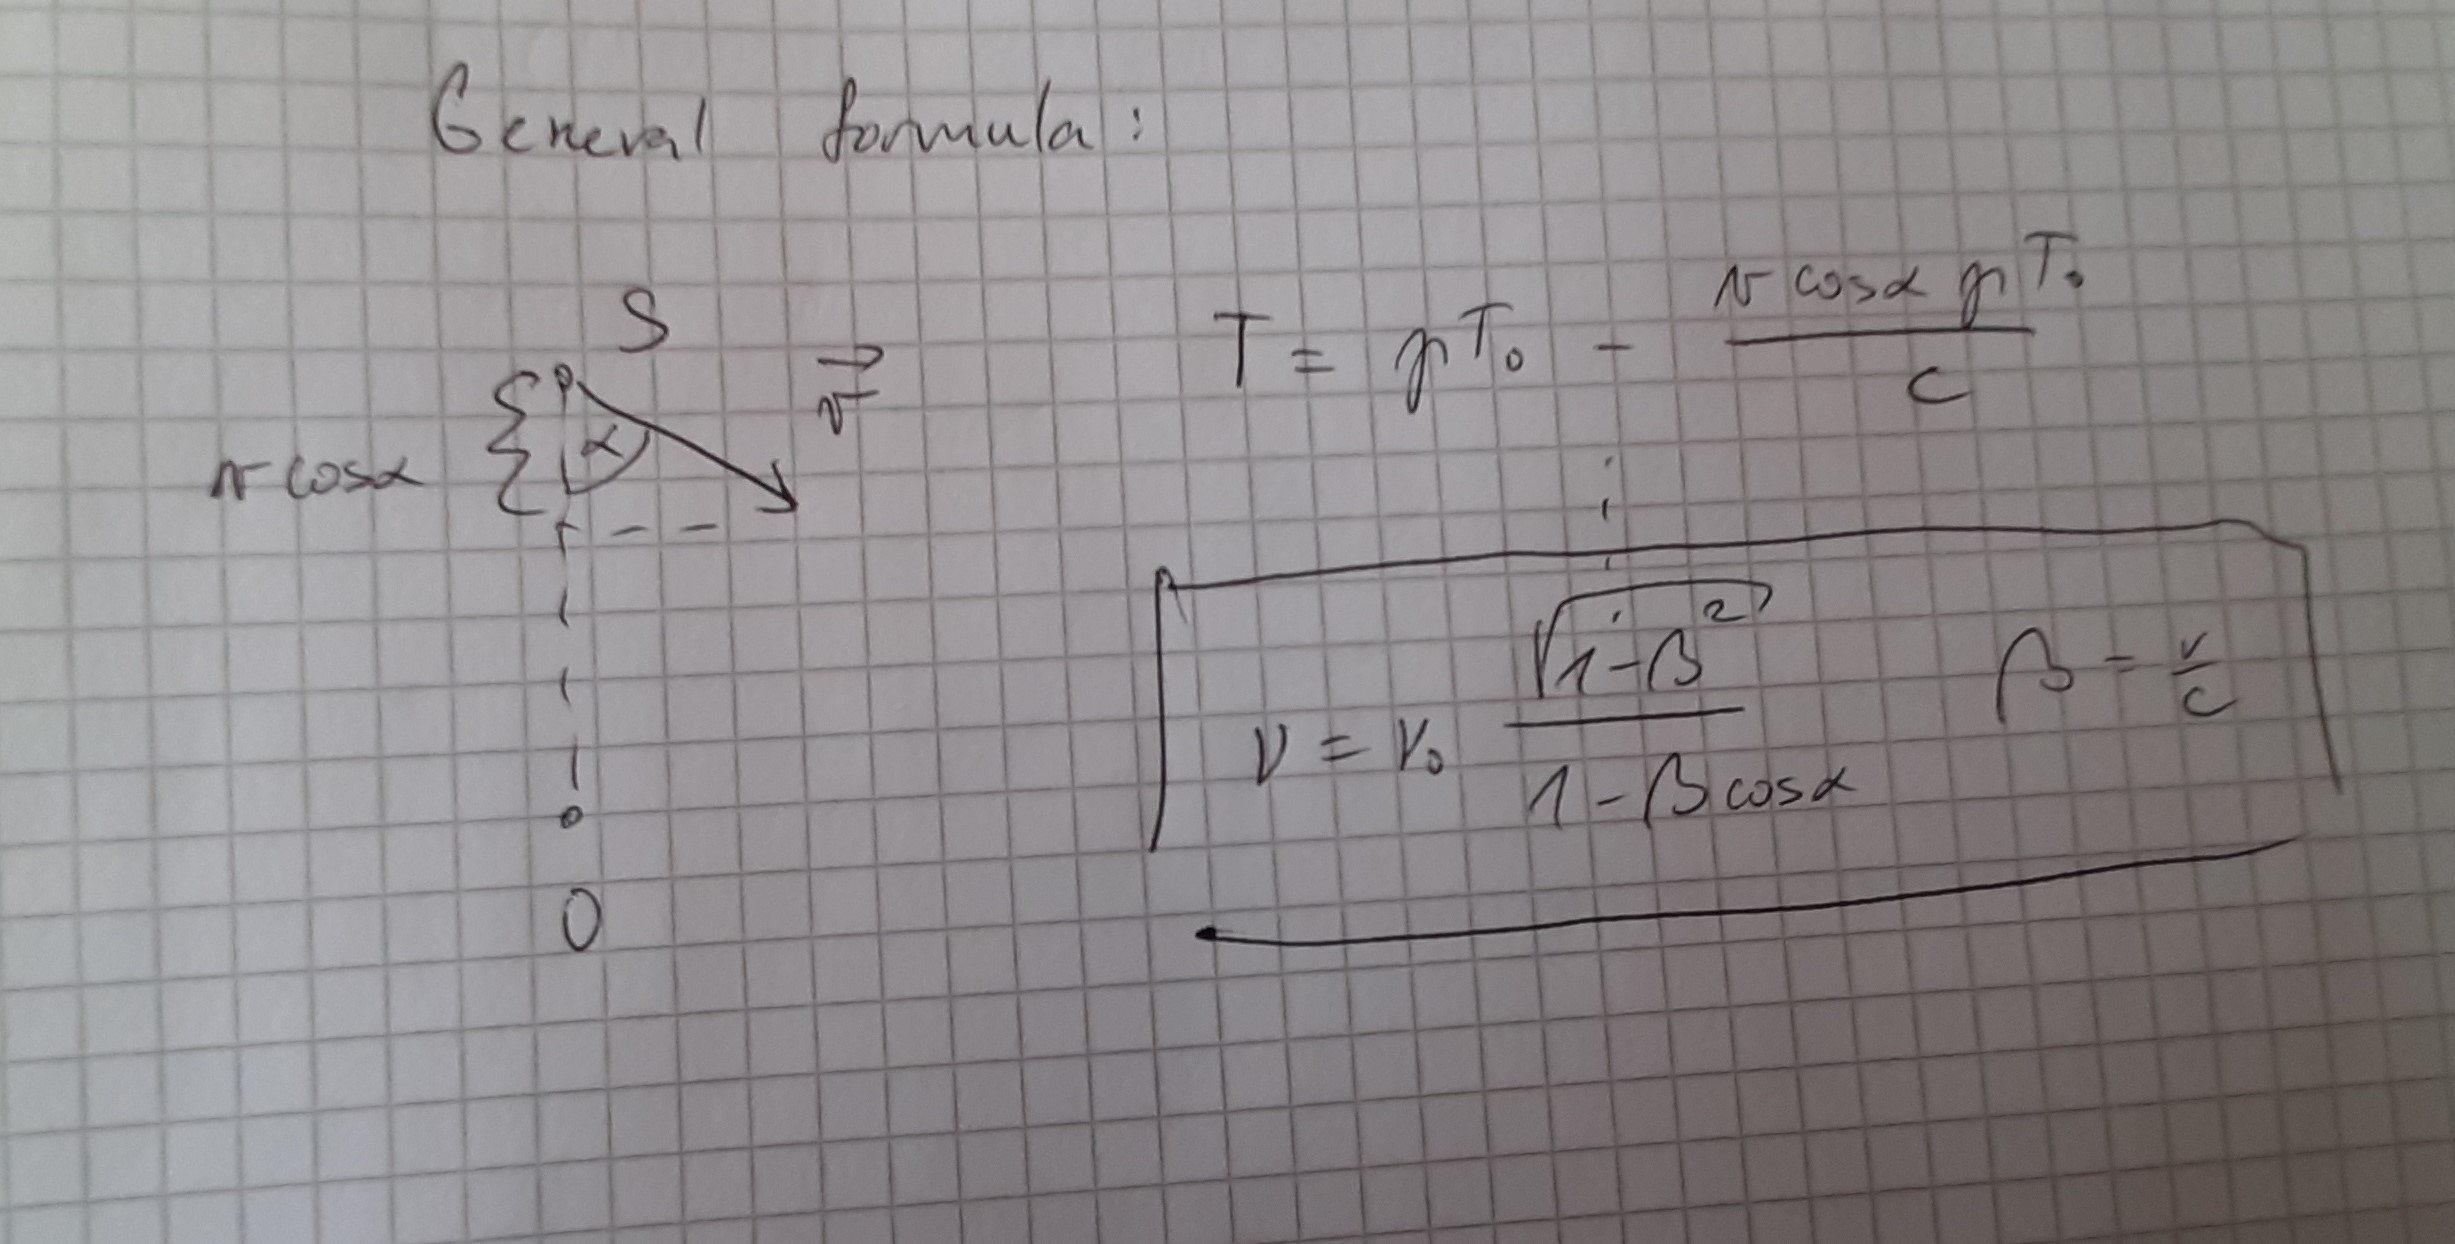 General formula:
S
v⃗
α
v cosα
T = γT₀ - (v cosα γT₀)/c
ν = ν₀ √(1-β²)/(1-β cosα)   β = v/c
O